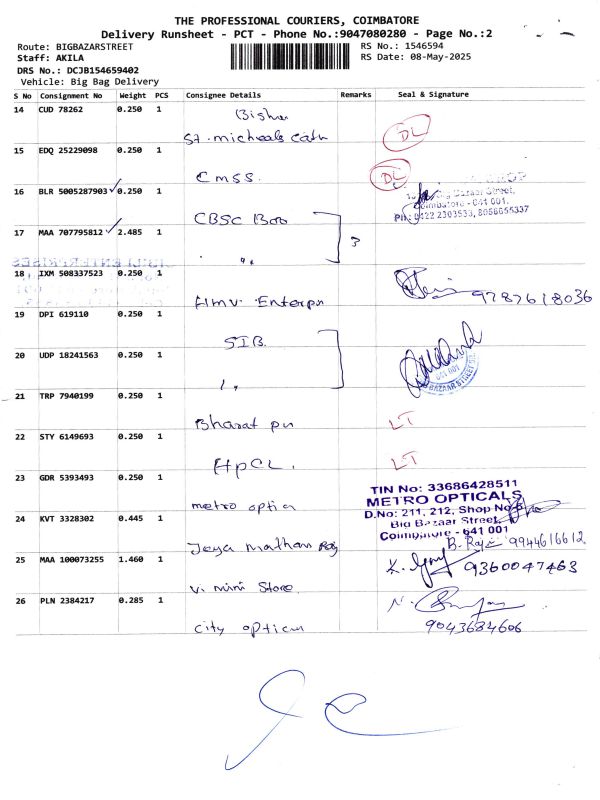 THE PROFESSIONAL COURIERS, COIMBATORE
Delivery Runsheet - PCT - Phone No.:9047080280 - Page No.:2
Route: BIGBAZARSTREET
RS No.: 1546594
Staff: AKILA
RS Date: 08-May-2025
DRS No.: DCJB154659402
Vehicle: Big Bag Delivery
S No Consignment No Weight PCS Consignee Details Remarks Seal & Signature
14 CUD 78262 0.250 1
St. micheals Cath DL
15 EDQ 25229098 0.250 1
CMSS. DL
16 BLR 5005287903 0.250 1
Big Bazaar Street,
Coimbatore - 641 001.
Ph: 0422 2303533, 8056655337
CBSC Boo
17 MAA 707795812 2.485 1
" 3
18 IXM 508337523 0.250 1
Hmv Enterpr 9787618036
19 DPI 619110 0.250 1
SIB.
20 UDP 18241563 0.250 1
"
BAZAAR STREET
21 TRP 7940199 0.250 1
Bharat pn LT
22 STY 6149693 0.250 1
HPCL. LT
23 GDR 5393493 0.250 1
metro optica
TIN No: 33686428511
METRO OPTICALS
D.No: 211, 212, Shop No
Big Bazaar Street,
Coimbatore - 641 001
24 KVT 3328302 0.445 1
Jeya mathan 9944616612
25 MAA 100073255 1.460 1
V. mini Store. 9360047463
26 PLN 2384217 0.285 1
City optical 9043684606